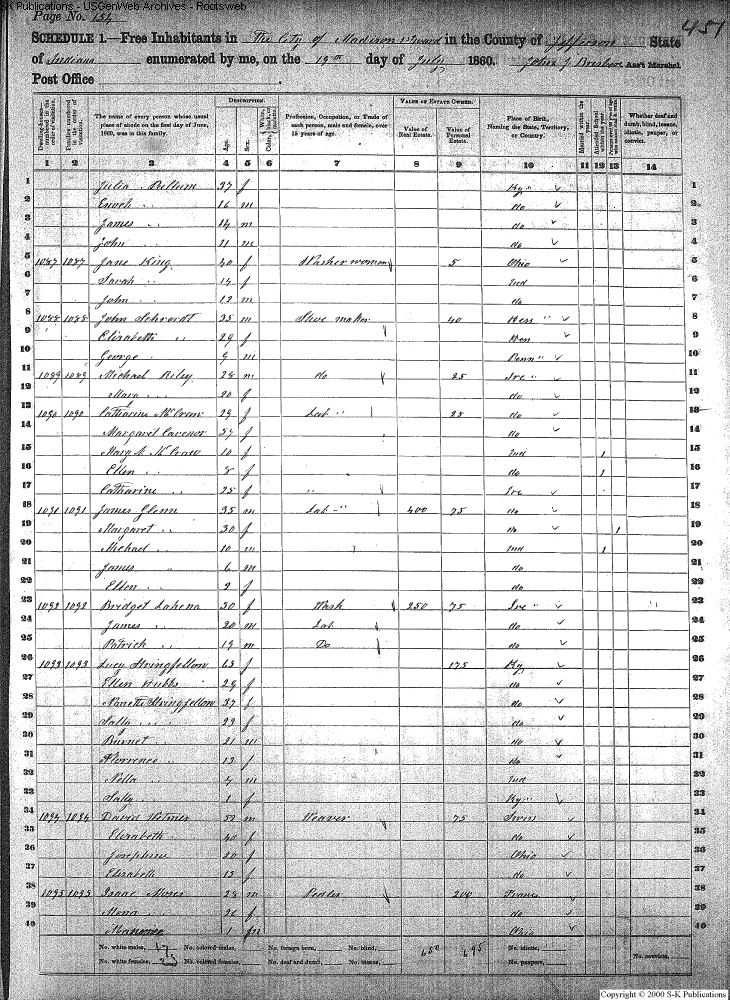 S-K Publications - USGenWeb Archives - Rootsweb
Page No. 154
451
SCHEDULE 1.—Free Inhabitants in The City of Madison Ward in the County of Jefferson State
of Indiana enumerated by me, on the 19th day of July 1860. John J Ass't Marshal.
Post Office
DESCRIPTION.
VALUE OF ESTATE OWNED.
Dwelling-houses—numbered in the order of visitation.
Families numbered in the order of visitation.
The name of every person whose usual place of abode on the first day of June, 1860, was in this family.
Age.
Sex.
Color, White, black, or mulatto.
Profession, Occupation, or Trade of each person, male and female, over 15 years of age.
Value of Real Estate.
Value of Personal Estate.
Place of Birth, Naming the State, Territory, or Country.
Married within the year.
Attended School within the year.
Whether deaf and dumb, blind, insane, idiotic, pauper, or convict.
1 2 3 4 5 6 7 8 9 10 11 12 13 14
1 Julia 37 f Ky 1
2 Enoch " 16 m do 2
3 James " 14 m do 3
4 John " 21 m do 4
5 1087 1087 Jane King 40 f Washer woman 5 Ohio 5
6 Sarah " 14 f Ind 6
7 John " 12 m do 7
8 1088 1088 John Schrordt 35 m Shoe maker 40 Hess " 8
9 Elizabeth " 29 f Hess 9
10 George " 9 m Penn " 10
11 1089 1089 Michael Riley 28 m do 25 Ire " 11
12 Mary 20 f do 12
13 1090 1090 Catharine McCraw 29 f Lab " 25 do 13
14 Margaret 57 f do 14
15 Mary McCraw 10 f Ind 1 15
16 Ellen " 8 f do 1 16
17 Catharine " 25 f " Ire 17
18 1091 1091 James Glenn 35 m Lab " 400 75 do 18
19 Margaret " 30 f do 1 19
20 Michael " 10 m Ind 1 20
21 James " 6 m do 21
22 Ellen " 2 f do 22
23 1092 1092 Bridget Lahena 50 f Wash 250 75 Ire " 23
24 James " 20 m Lab do 24
25 Patrick " 19 m Do do 25
26 1093 1093 Lucy Stringfellow 63 f 175 Ky 26
27 Ellen Hubbs 29 f do 27
28 Stringfellow 37 f do 28
29 Sally " 23 f do 29
30 Burnet " 21 m do 30
31 Florrence " 13 f do 31
32 Nella " 4 m Ind 32
33 Sally " 1 f Ky " 33
34 1094 1094 David 52 m Weaver 75 34
35 Elizabeth 40 f do 35
36 Josephine 20 f Ohio 36
37 Elizabeth 13 f do 37
38 1095 1095 Isaac Moses 28 m Pedler 200 France 38
39 Mena 26 f do 39
40 1 m Ohio 40
No. white males, 17 No. colored males, No. foreign born, No. blind, 650 695 No. idiotic, No. convicts,
No. white females, 23 No. colored females, No. deaf and dumb, No. insane, No. paupers,
Copyright © 2000 S-K Publications